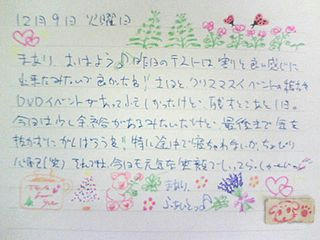 12月9日 火曜日
まあり、おはよう♪昨日のテストは割と良い感じに
出来たみたいで良かったね!! まほと クリスマスイベントの絵も
DVDイベントがあって忙しかったけど、残すところあと1日。
今日は少し余裕があるみたいだけど、最後まで気を
抜かずにがんばろうね!! 特に途中で寝ちゃわないか、ちょっぴり
心配(笑) それでは、今日も元気な笑顔で、いってらっしゃーい
まあり
ふぁいとっ♪